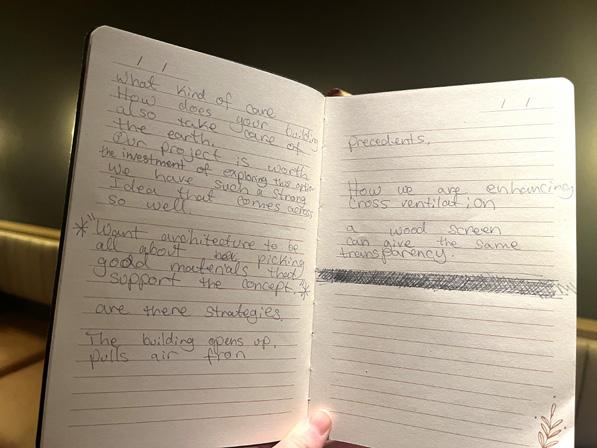 What kind of care
How does your building
also take care of
the earth.
Our project is worth
the investment of exploring this option
We have such a strong
Idea that comes across
so well.
*"Want architecture to be
all about picking
good materials that
support the concept."*
are there strategies.
The building opens up.
pulls air from
precedents.
How we are enhancing
cross ventilation
a wood screen
can give the same
transparency.